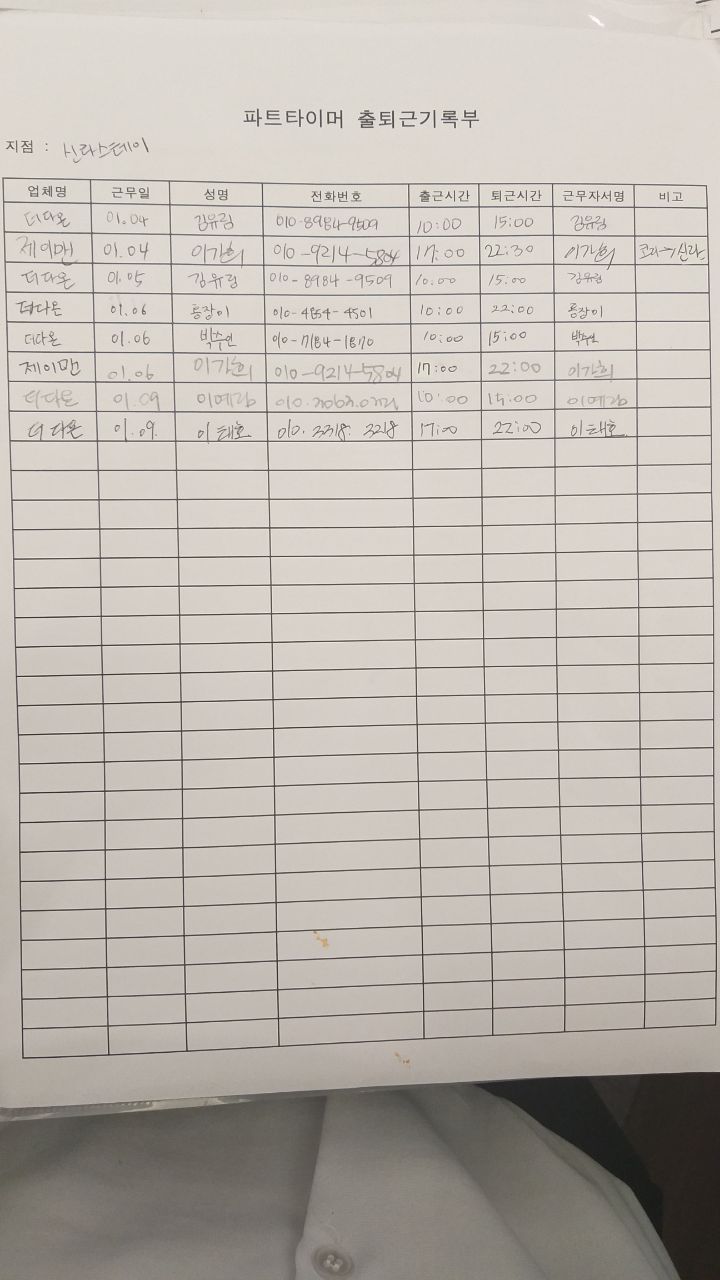 파트타이머 출퇴근기록부
지점 : 신라스테이
업체명 근무일 성명 전화번호 출근시간 퇴근시간 근무자서명 비고
더다온 01.04 김유림 010-8984-9509 10:00 15:00 김유림
제이맨 01.04 이가희 010-9214-5804 17:00 22:30 이가희 코리→신라
더다온 01.05 김유림 010-8984-9509 10:00 15:00 김유림
더다온 01.06 010-4854-4501 10:00 22:00
더다온 01.06 박수연 010-7184-1870 10:00 15:00 박수연
제이맨 01.06 이가희 010-9214-5804 17:00 22:00 이가희
더다온 01.09 이예람 10:00 15:00 이예람
더다온 01.09. 이태호 010.3318.3218 17:00 22:00 이태호